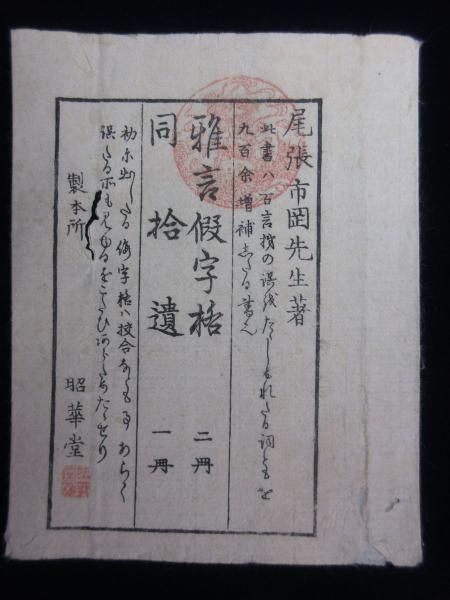 尾張市岡先生著
此書ハ百言格の誤をたゝしもれたる詞ともを
九百余増補したる書也
雅言假字格 二冊
同 拾遺 一冊
初に出したる假字格ハ校合なともあらく
誤たる所も見ゆるをこたひあらためたゝせり
製本所 昭華堂